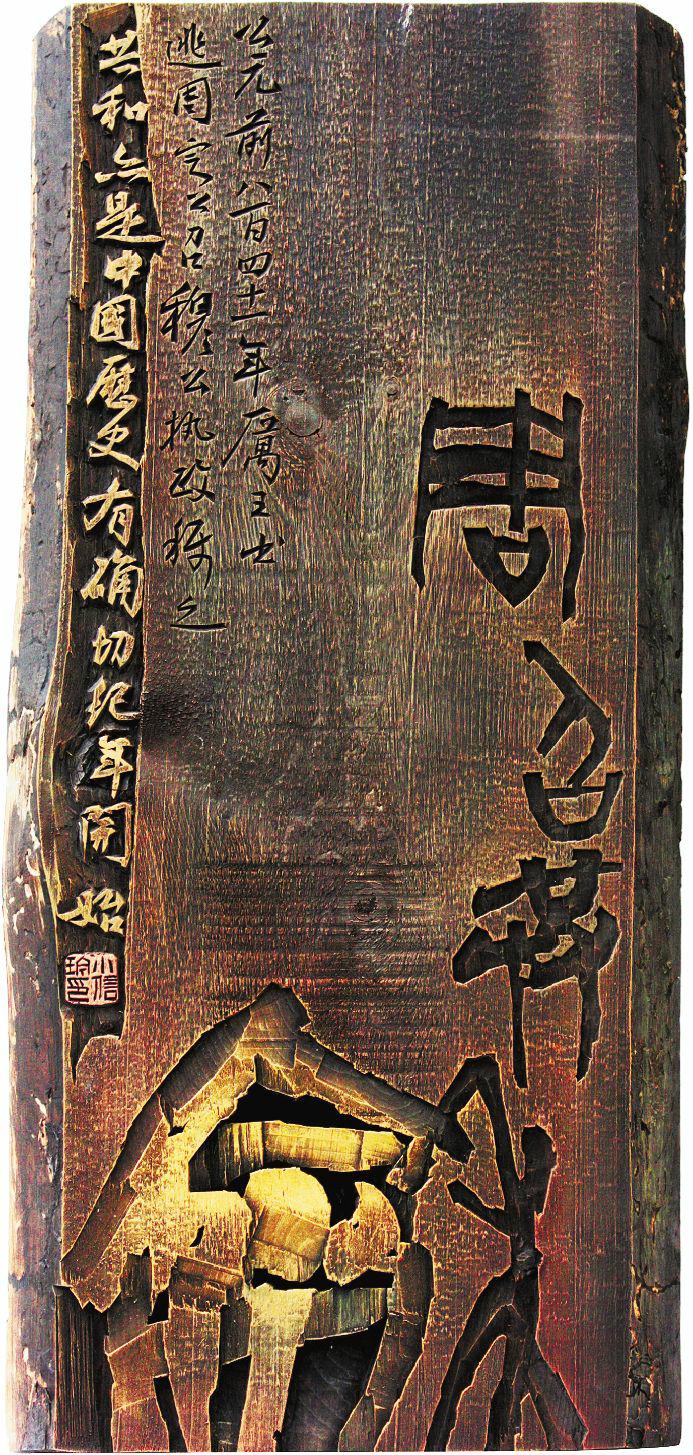 周召共和
公元前八百四十一年厲王出
逃周定公召穆公执政称之
共和亦是中國歷史有确切纪年開始